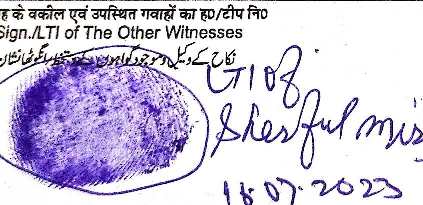 ह के वकील एवं उपस्थित गवाहों का ह0/टीप नि0
Sign./LTI of The Other Witnesses
نکاح کے وکیل و موجود گواہوں کے دستخط/انگوٹھا نشان
LTI of
Sherful mis
16.07.2023